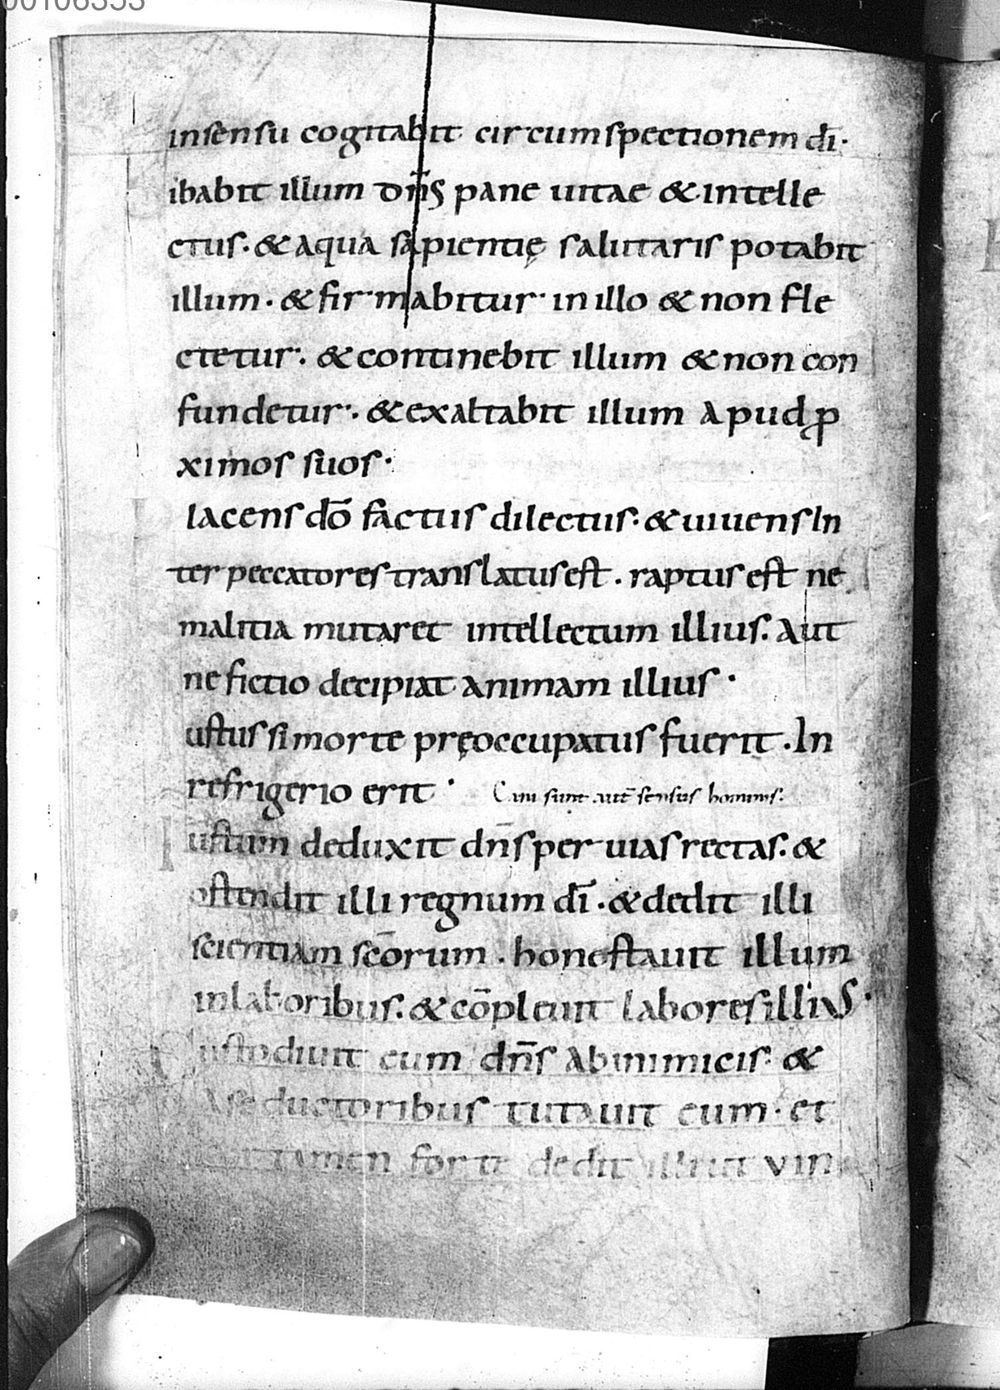 00106353
insensu cogitabit circumspectionem dī·
ibabit illum dn̄s pane uitae & intelle
ctus· & aqua sapientię salutaris potabit
illum· & firmabitur· in illo & non fle
ctetur·. & continebit illum & non con
fundetur·. & exaltabit illum apud ꝓ
ximos suos·
lacens dō factus dilectus· & uiuens In
ter peccatores translatus est· raptus est ne
malitia mutaret intellectum illius·. aut
ne fictio decipiat animam illius·
ustus si morte pręoccupatus fuerit· In
refrigerio erit· sunt aut̄ sensus hominis·
ustum deduxit dn̄s per uias rectas·. &
ostendit illi regnum dī· & dedit illi
scientiam scōrum· honestauit illum
in laboribus·. & cōpleuit labores illius·
ustodiuit eum dn̄s ab inimicis· &
a seductoribus tutauit eum· et
certamen forte dedit illi ut vin